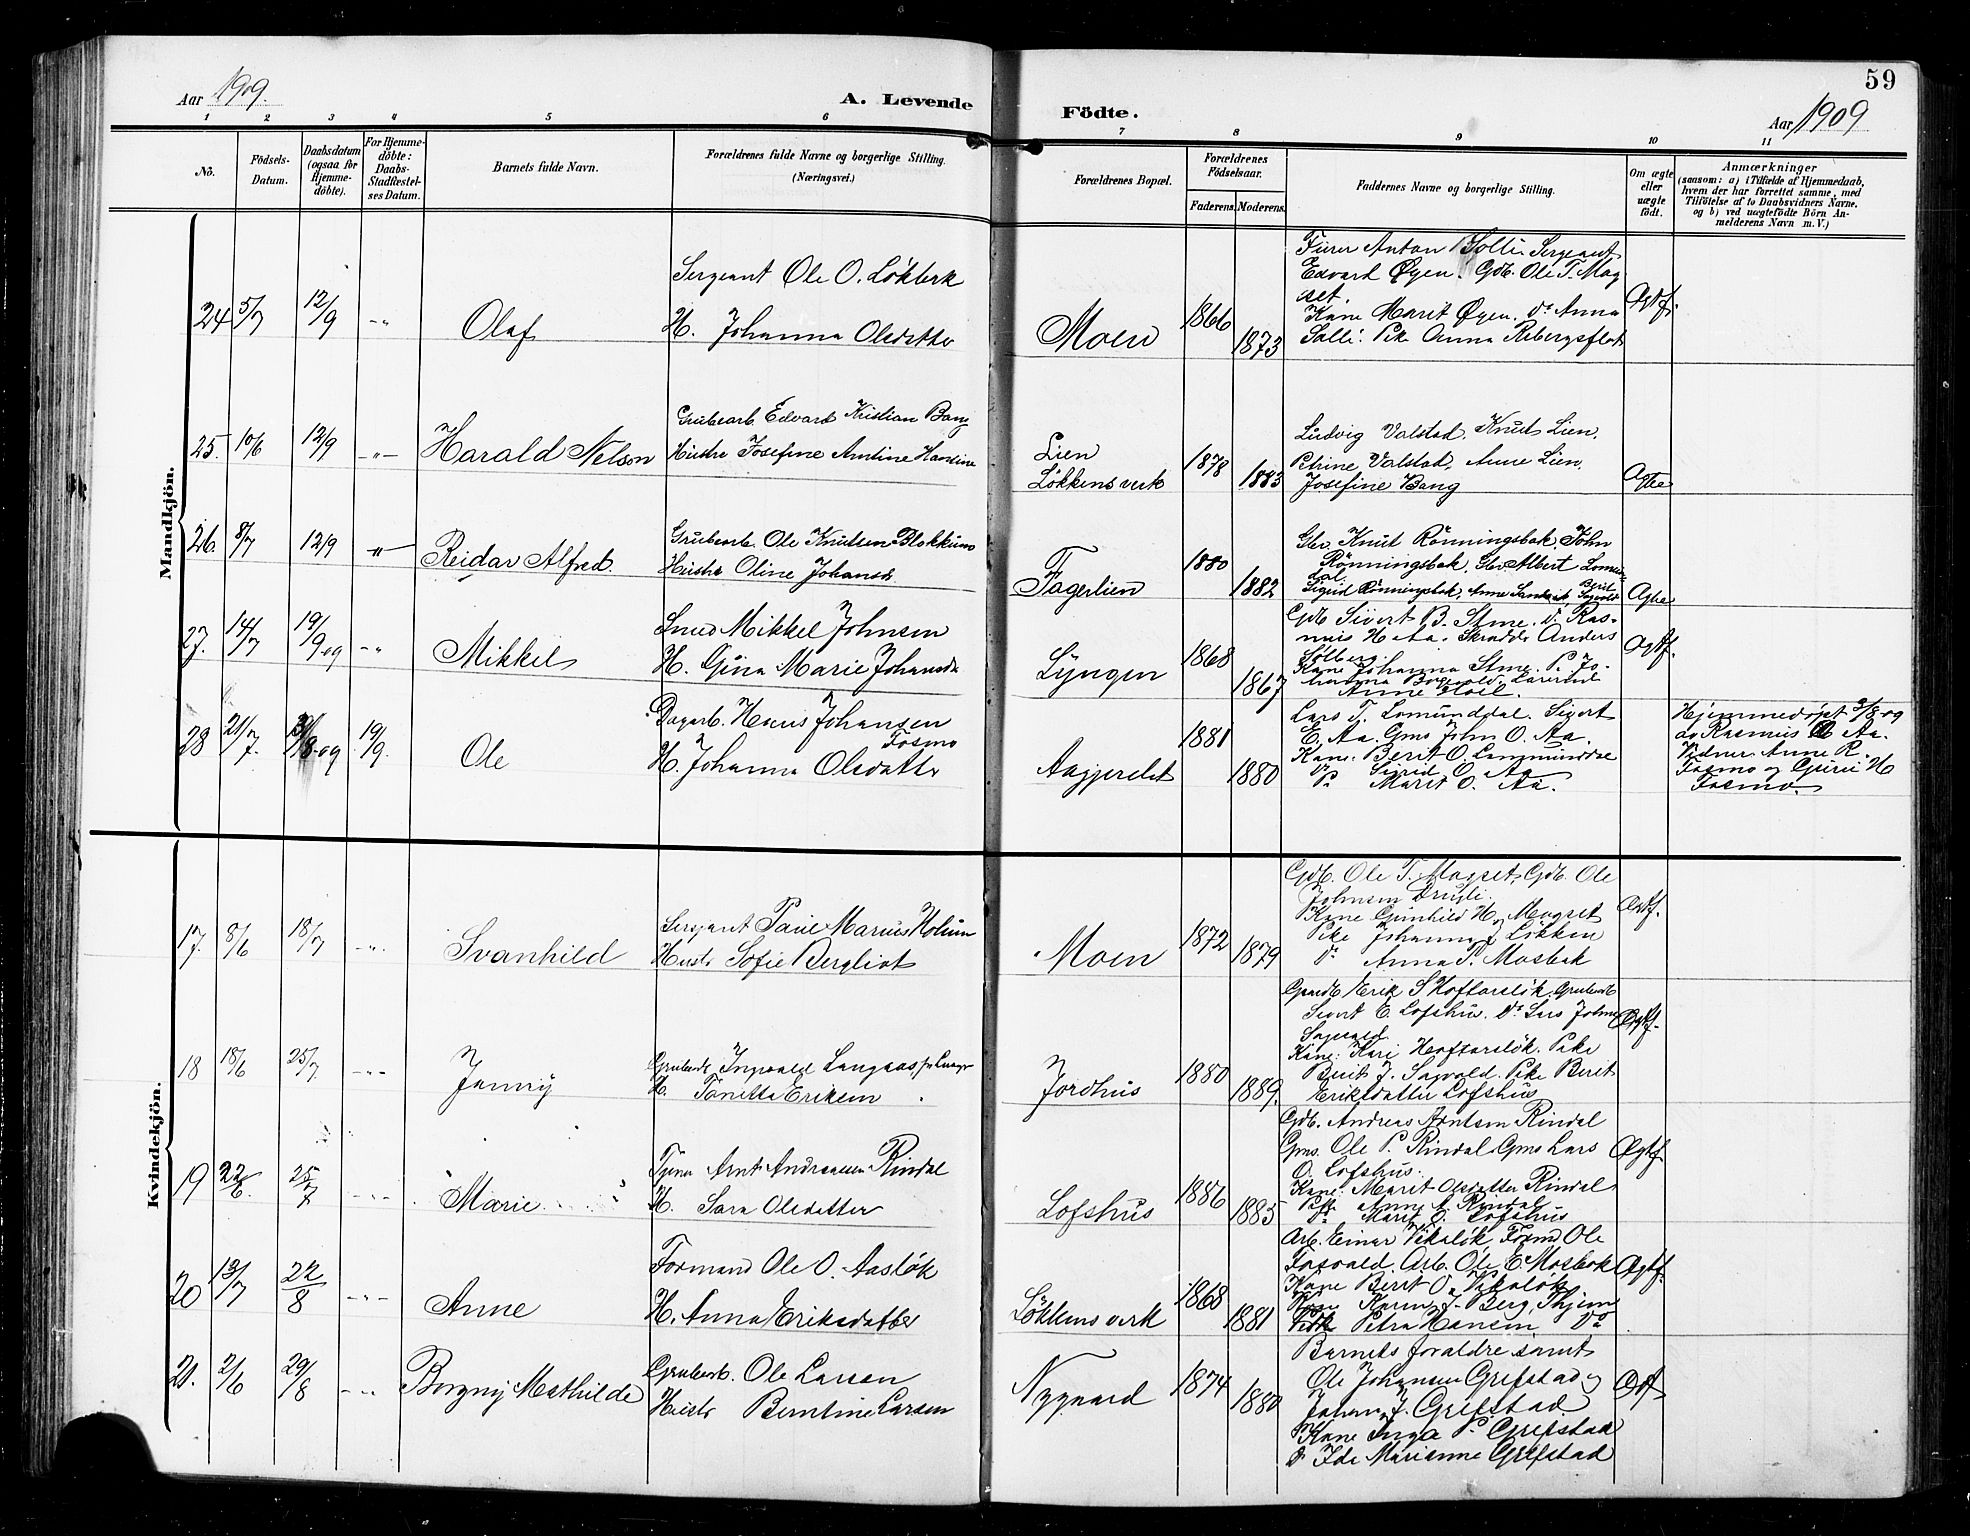 59
Aar 1909.
A. Levende
Födte.
Aar 1909
1 2 3 4 5 6 7 8 9 10 11
No.
Födsels-
Datum.
Daabsdatum
(ogsaa for
Hjemme-
döbte).
For Hjemme-
döbte:
Daabs-
Stadfestel-
ses Datum.
Barnets fulde Navn.
Forældrenes fulde Navne og borgerlige Stilling.
(Næringsvei.)
Forældrenes Bopæl.
Forældrenes
Födselsaar.
Faderens. Moderens.
Faddernes Navne og borgerlige Stilling.
Om ægte
eller
uægte
födt.
Anmærkninger
(saasom: a) i Tilfælde af Hjemmedaab,
hvem der har forrettet samme, med
Tilföielse af to Daabsvidners Navne,
og b) ved uægtefödte Börn An-
melderens Navn m. V.)
Mandkjön.
24 5/7 12/9 -"- Olaf
Sergeant Ole O. Løkberk
H. Johanna Olsdatter
Moen 1866 1873
Furer Anton Solli Sergeant
Edvart Øyen. Gdb. Ole T. Mog
set.
Kone Marit Øyen. do Anna
Solli. Pike Anna Rebergsflot
Ægtf.
25. 10/6 12/9 -"- Harald Nelson
Grubearb. Edvard Kristian Bang
Hustru Josefine Antine Hansine
Lien
Løkkens verk 1878 1883
Ludvig Valstad. Knut Lien.
Petrine Valstad, Anne Lien.
Josefine Bang
Ægte
26. 8/7 12/9 -"- Reidar Alfred.
Grubearb. Ole Knutsen Blokkum
Hustru Oline Johansd.
Fagerlien 1880 1882
Gbr. Knut Rønningsbak, John
Rønningsbak, Gbr. Albert Lomun
dal.
Sigrid Rønningsbak, Anne Berit
Ægte
27. 14/7 19/9 09 -"- Mikkel
Smed Mikkel Johnsen
H. Gina Marie Johansd.
Lyngen 1868 1867
Gdb Sivert B. Stme. do Ras-
mus H Aa. Skrædder Anders
Solberg.
Kone Johanna Stme. P. Jo-
hanna Lærerinde
Anne Hoel.
Ægtf.
28 21/7. 3/8 09 19/9. Ole
Dagarb. Hans Johansen
Fosmo
H. Johanna Olsdatter
Aagjerdet 1881 1880
Lars T. Lomunddal. Sivert
E. Aa. Gms John O. Aa.
Kone. Berit O. Langmunddal
do Sigrid O. Aa
P. Marit O. Aa.
Hjemmedøpt 3/8 09
av Rasmus H Aa.
Vidner Anne R.
Fosmo og Guru H
Fosmo.
Kvindekjön.
17. 8/6 18/7 -"- Svanhild
Sersjant Paul Marius Holum
Hustr. Sofie Bergliot
Moen 1872 1879
Gdb. Ole T. Mogset, Gdb. Ole
Johnsen Drugli.
Kone Gunhild H. Mogset
Pike Johanna J Løkken
do Anna P. Mosbak
Ægtf.
18 18/6 25/7. -"- Jenny
Grubearb Ingvald Langaas
H. Tonetta Eriksen
Jordhus 1880 1889.
Gaardb Erik S Hoftarsløk. Grubearb
Sivert E. Lofshus. do Lars Johns
Sagvold
Kone: Kari Hoftarsløk. Pike
Berit J. Sagvold. Pike Berit
Eriksdatter Lofshus
Ægtf.
19 22/6. 25/7 -"- Marie
Tjene Arnt Andreassen Rindal
H. Sara Olsdatter
Lofshus 1886 1885
Gdb. Andreas Arntsen Rindal
Gms. Ole P. Rindal. Gms Lars
O. Lofshus.
Kone: Marit Olsdatter Rindal
Pike Anne A Rindal
do Marit O. Lofshus
Ægtf.
20 13/7 22/8 -"- Anne
Formand Ole O. Aasløk
H. Anna Eriksdatter
Løkkens verk 1868 1881
Arb. Einar Vikaløk Form Ole
Fosvold. Arb. Ole E. Mosbak
Kone Berit O. Vikaløk
Karen J. Berg, Thjem
Petra Hansen, do
Ægtf.
21. 2/6 29/8 -"- Borgny Mathilde
Grubearb. Ole Larsen
Hustr Berntine Larsen
Nygaard 1874 1880
Barnets foraldre samt
Ole Johansen Grefstad,
Johan J. Grefstad
Kone Inga P. Grefstad
do Ida Marianne Grefstad
Ægtf